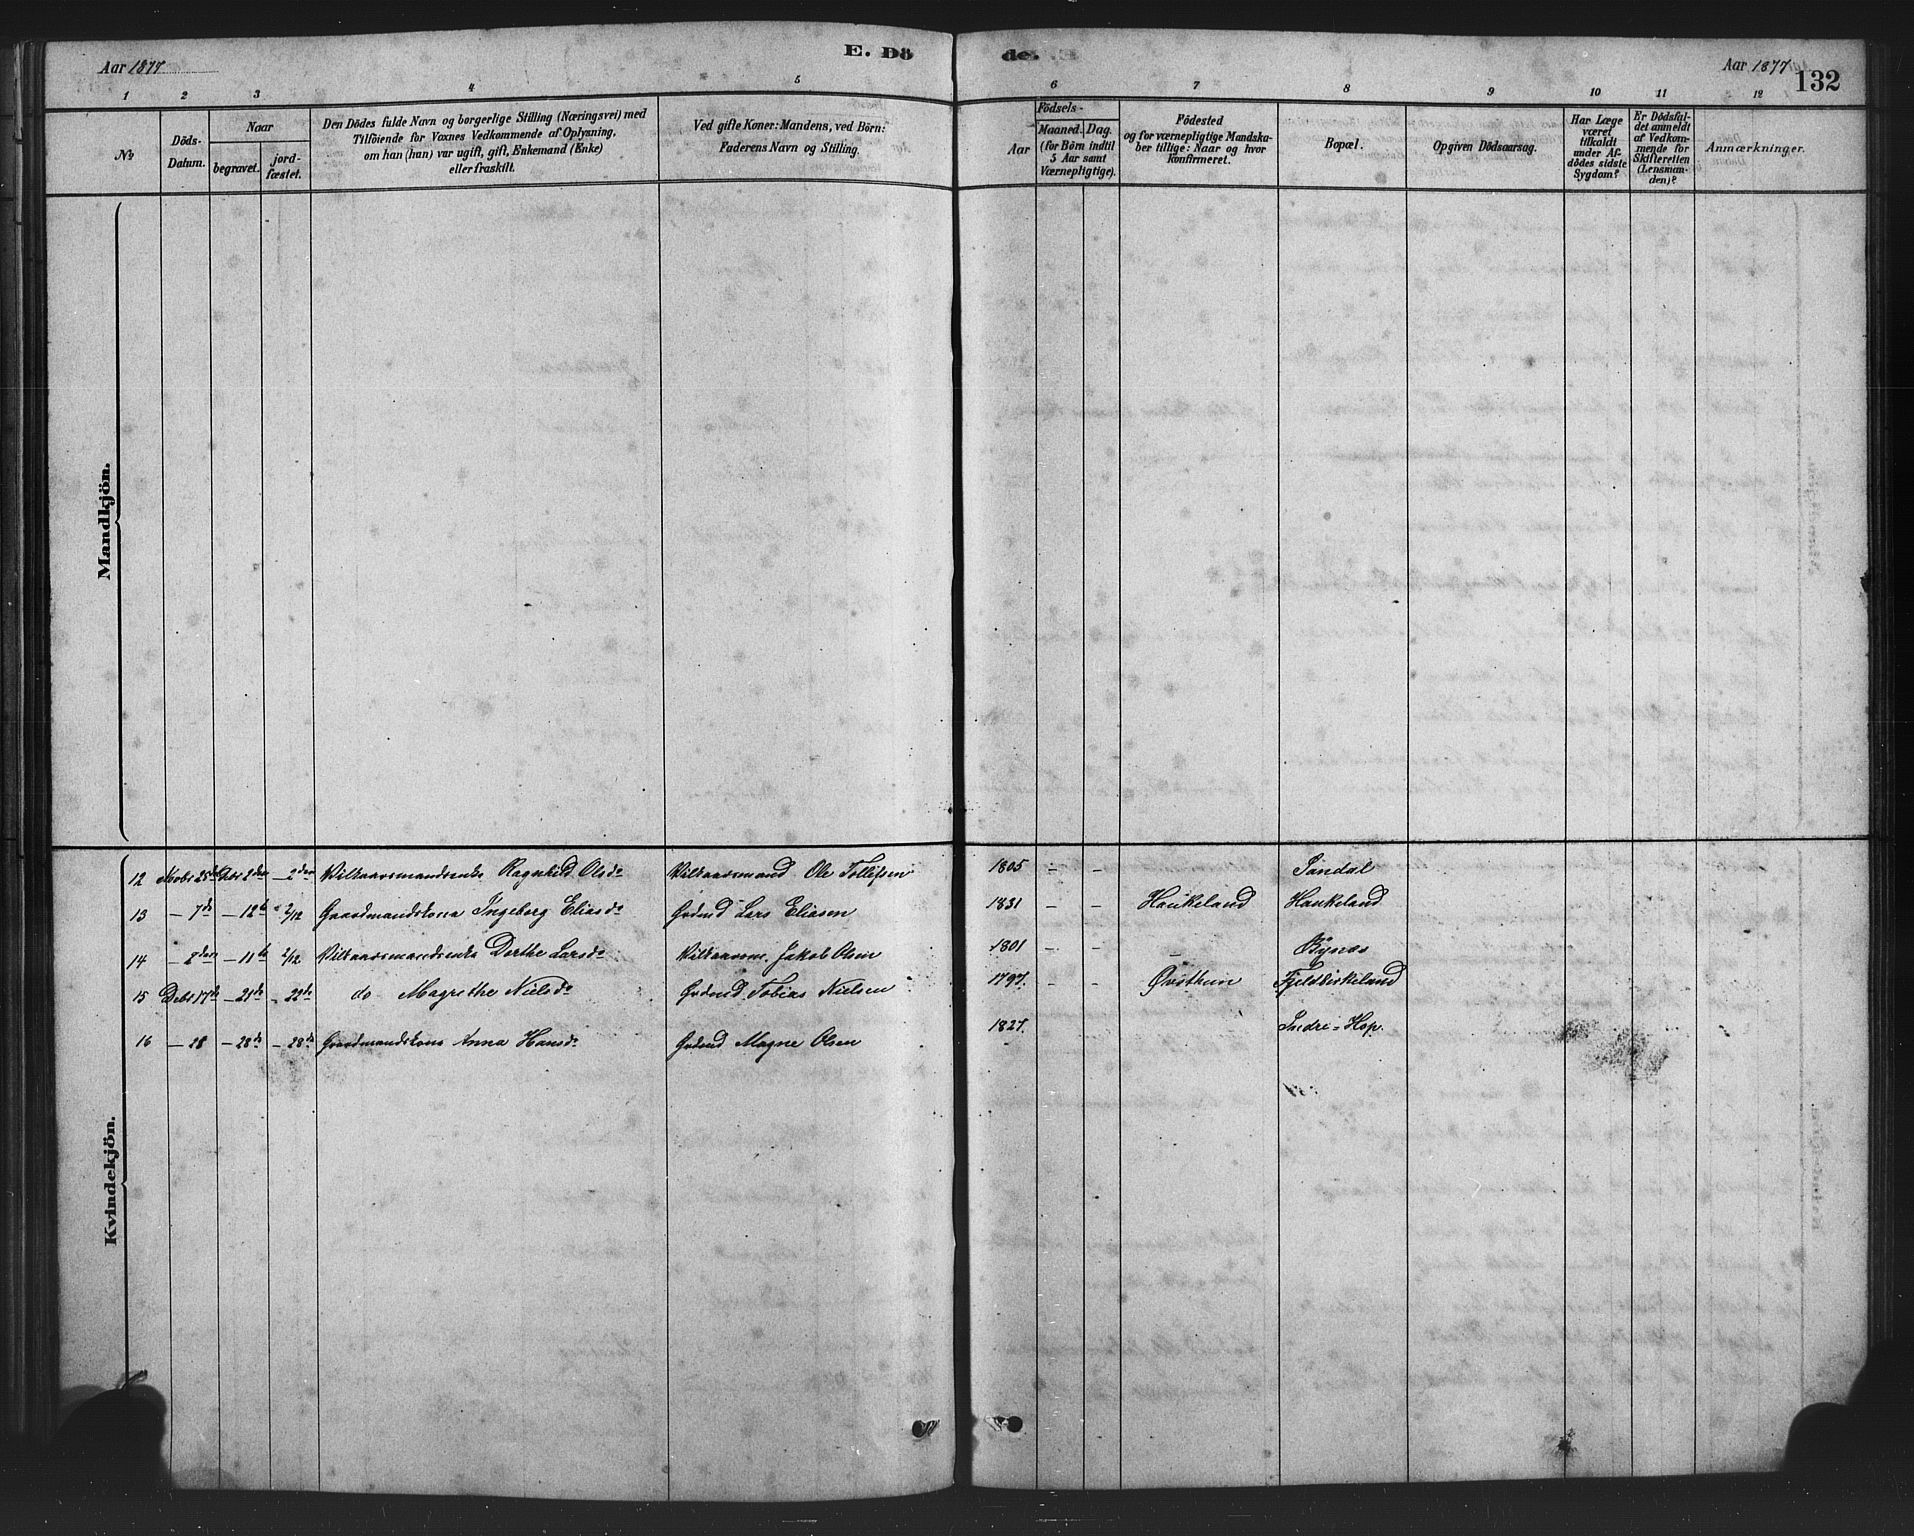 Aar 1877
E. Dö
de.
Aar 1877
132
1 2 3 4 5 6 7 8 9 10 11 12
No
Döds-Datum.
Naar
begravet.
jord-fæstet.
Den Dödes fulde Navn og borgerlige Stilling (Næringsvei) med
Tilföiende for Voxnes Vedkommende af Oplysning,
om han (hun) var ugift, gift, Enkemand (Enke)
eller fraskilt.
Ved gifte Koner: Mandens, ved Börn:
Faderens Navn og Stilling.
Födsels-
Aar
Maaned. Dag.
(for Börn indtil
5 Aar samt
Værnepligtige).
Födested
og for værnepligtige Mandska-
ber tillige: Naar og hvor
Konfirmeret.
Bopæl.
Opgiven Dödsaarsag.
Har Læge
været
tilkaldt
under Af-
dödes sidste
Sygdom?
Er Dödsfal-
det anmeldt
af Vedkom-
mende for
Skifteretten
(Lensman-
den)?
Anmærkninger.
Mandkjön.
Kvindekjön.
12 Novbr 25de 2den – 2den Vilkaarsmandsenke Ragnhild Olsdr Vilkaarsmand Ole Tollefsen 1805 – – Sandal
13 – 7de – 12te 2/12 Gaardmandskona Ingeborg Eliasdr Grdmd Lars Eliasen 1831 – – Haukeland Haukeland
14 – 8den – 11te 2/12 Vilkaarsmandsenke Dorthe Larsdr Vilkaarsm. Jakob Olsen 1801 – – – Bynes
15 Debr 17de – 21de – 22de do Magrethe Nielsdr Grdmd Tobias Nielsen 1797. Øvsthun Fjeldbirkeland
16 – 28 – 28de – 28de Gaardmandskone Anna Hansdr Grdmd Magne Olsen 1827. Indre-Hop.